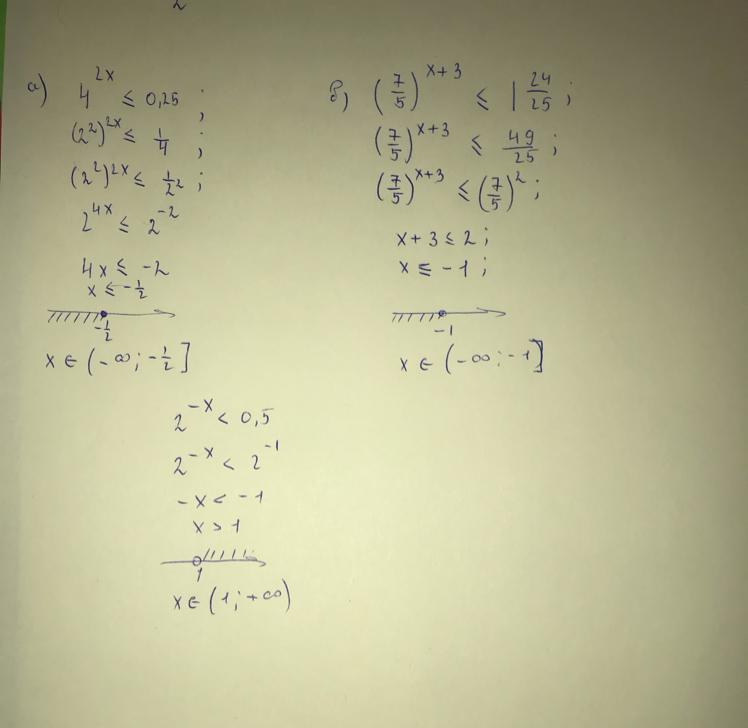 2
а) 4^{2x} ≤ 0,25 ;
(2²)^{2x} ≤ 1/4 ;
(2²)^{2x} ≤ 1/2² ;
2^{4x} ≤ 2^{-2}
4x ≤ -2
x ≤ -1/2
-1/2
x ∈ (-∞; -1/2]
б) (7/5)^{x+3} ≤ 1 24/25 ;
(7/5)^{x+3} ≤ 49/25 ;
(7/5)^{x+3} ≤ (7/5)² ;
x + 3 ≤ 2 ;
x ≤ -1 ;
-1
x ∈ (-∞; -1]
2^{-x} < 0,5
2^{-x} < 2^{-1}
-x < -1
x > 1
1
x ∈ (1; +∞)